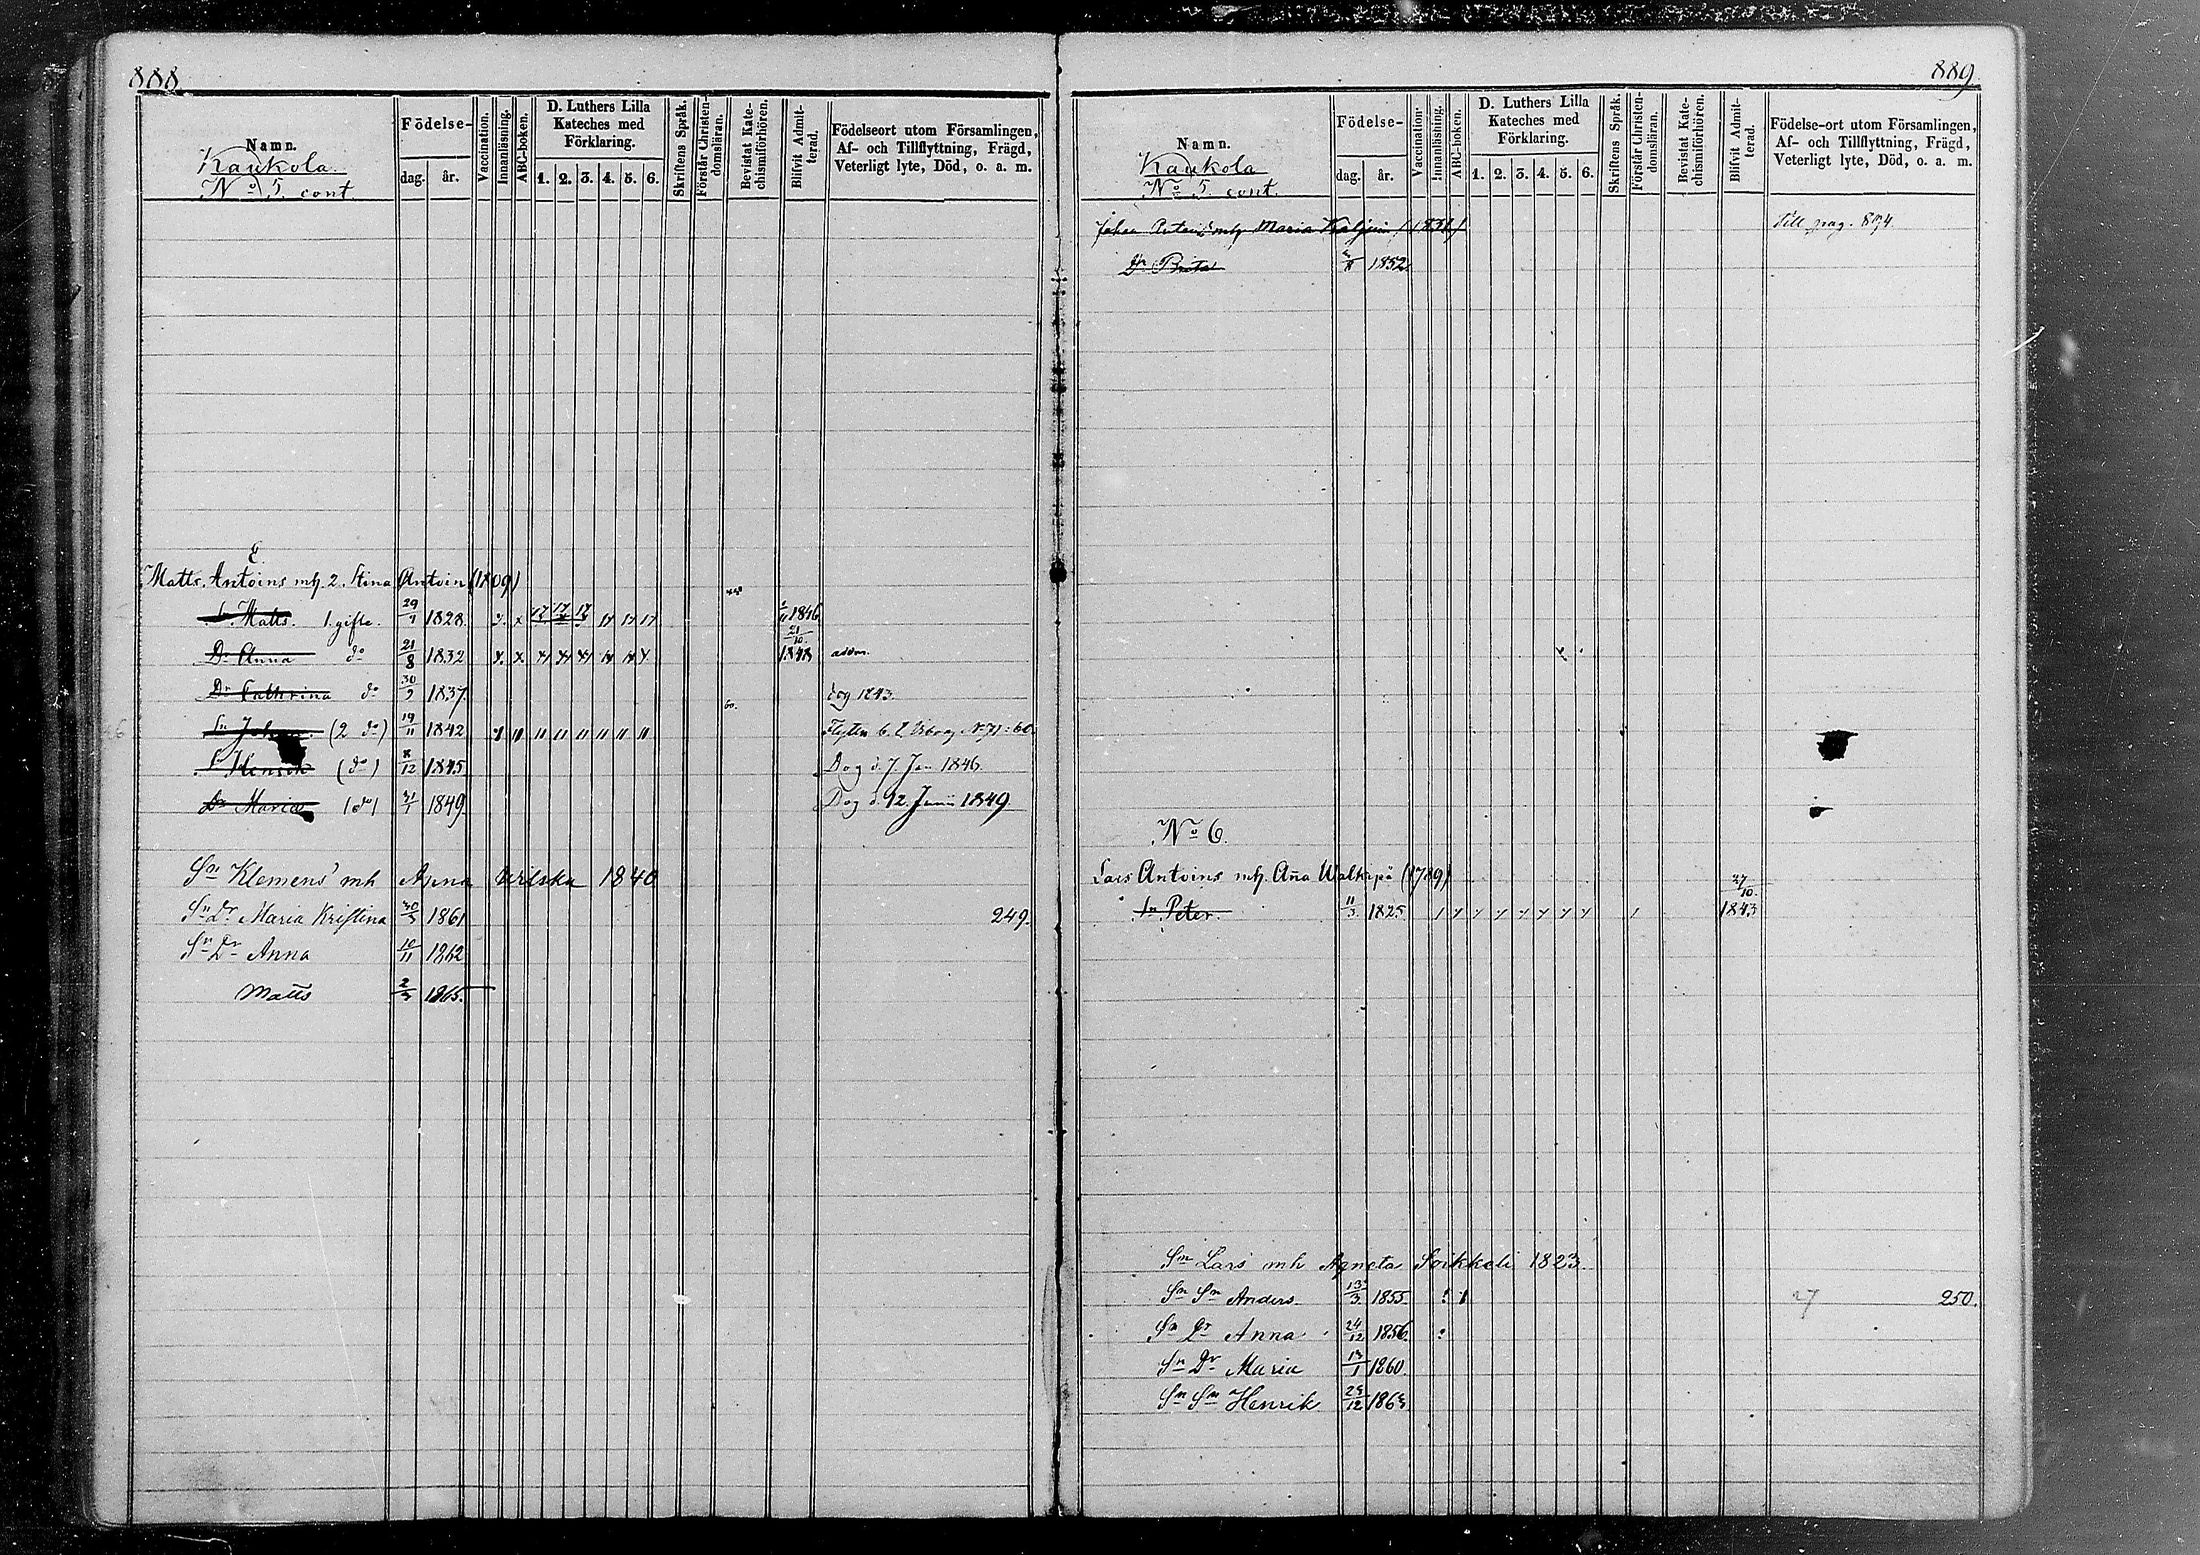 888
Namn.
Kaukola.
No 5. cont.
Födelse-
dag. år.
Vaccination.
Innanläsning.
ABC-boken.
D. Luthers Lilla
Kateches med
Förklaring.
1. 2. 3. 4. 5. 6.
Skriftens Språk.
Förstår Christen-
domsläran.
Bevistat Kate-
chismiförhören.
Blifvit Admit-
terad.
Födelseort utom Församlingen,
Af- och Tillflyttning, Frägd,
Veterligt lyte, Död, o. a. m.
Matts Antoins mh. 2. Stina Antoin (1809)
Sn Matts. 1. gifte. 29/9 1828. 1846
Dr Anna do 21/8 1832 21/10 1848
Dr Cathrina do 30/9 1837. dog 1843.
Sn Johan (2 do) 19/11 1842
Sn Henrik (do) 8/12 1845 Dog d. 7 Jan 1846.
Dr Maria (do) 31/1 1849 Dog d. 12. Junii 1849
Sn Klemens' mh Anna 1840
Sn Dr Maria Kristina 30/3 1861 249.
Sn Dr Anna 10/11 1862
Matts 2/3 1865.
889.
Namn.
Kaukola
No 5. cont.
Födelse-
dag. år.
Vaccination.
Innanläsning.
ABC-boken.
D. Luthers Lilla
Kateches med
Förklaring.
1. 2. 3. 4. 5. 6.
Skriftens Språk.
Förstår Christen-
domsläran.
Bevistat Kate-
chismiförhören.
Blifvit Admit-
terad.
Födelse-ort utom Församlingen,
Af- och Tillflyttning, Frägd,
Veterligt lyte, Död, o. a. m.
Johan Antoins mh Maria (1831) Till pag. 894.
Dr Brita 1852.
No 6.
Lars Antoins mh. Aña Walkepä (1789)
Sn Peter. 11/3 1825 27/10. 1843
Sn Lars mh Agneta Soikkeli 1823.
Sn Sn Anders 13/3. 1855. 27 250.
Sn Dr Anna 24/12 1856.
Sn Dr Maria 13/1 1860.
Sn Sn Henrik 25/12 1863